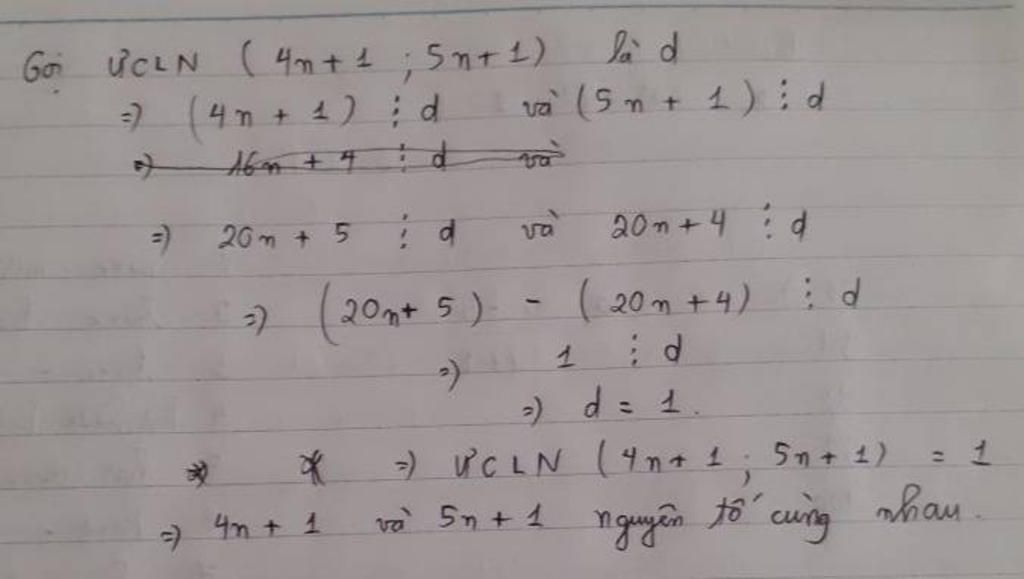 Gọi ƯCLN (4n+1 ; 5n+1) là d
=> (4n + 1) ⋮ d và (5n + 1) ⋮ d
=> 16n + 4 ⋮ d và
=> 20n + 5 ⋮ d và 20n + 4 ⋮ d
=> (20n + 5) - (20n + 4) ⋮ d
=> 1 ⋮ d
=> d = 1.
=> ƯCLN (4n + 1 ; 5n + 1) = 1
=> 4n + 1 và 5n + 1 nguyên tố cùng nhau.